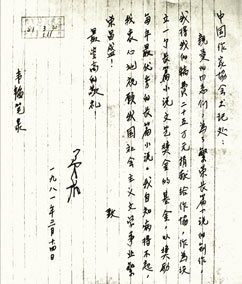 中国作家协会书记处：
亲爱的同志们，为了繁荣长篇小说的创作，
我将我的稿费二十五万元捐献给作协，作为设
立一个长篇小说文艺奖金的基金，以奖励
每年最优秀的长篇小说。我自知病将不起，
我衷心地祝愿我国社会主义文学事业繁
荣昌盛！
致
最崇高的敬礼！
茅盾
一九八一年三月十四日
韦韬笔录